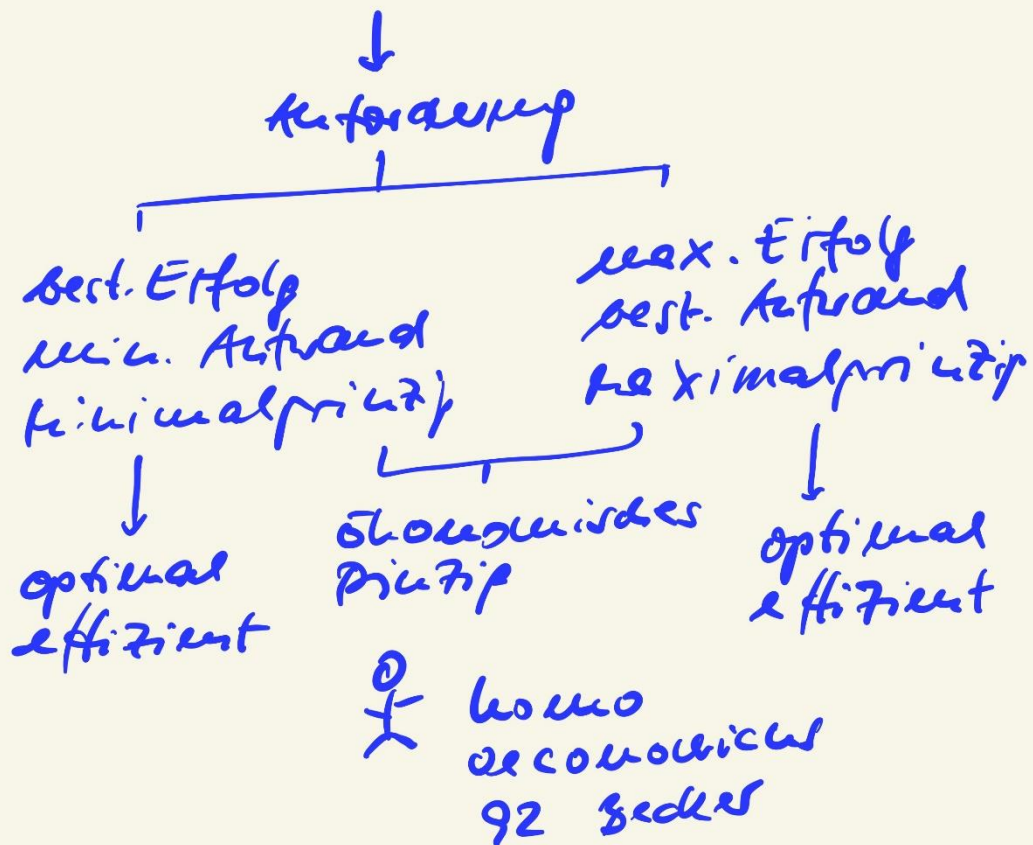 Anforderung
best. Erfolg
min. Aufwand
Minimalprinzip
max. Erfolg
best. Aufwand
Maximalprinzip
ökonomisches
Pinzip
optimal
effizient
optimal
effizient
homo
oeconomicus
92 Becker